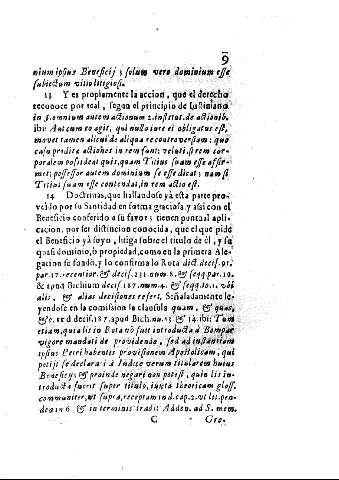 9
nium ipsius Beneficij; solum vero dominium esse
subiectum vitio litigiosi.
13 Y es propiamente la accion, que el derecho
reconoce por real, segun el principio de Iustiniano
in §. omnium autem actionum 2. institut. de actionib.
ibi: Aut cum eo agit, qui nullo iure ei obligatus est,
movet tamen alicui de aliqua re controversiam: quo
casu prodita actiones in rem sunt: veluti si rem cor-
poralem possideat quis, quam Titius suam esse affir-
met; possessor autem dominum se esse dicat; nam si
Titius suam esse contendat, in rem actio est.
14 Doctrinas, que hallandose yà esta parte pro-
veido por su Santidad en forma graciosa, y assi con el
Beneficio conferido a su favor; tienen puntual apli-
cacion, por ser distincion conocida, que el que pide
el Beneficio yà suyo, litiga sobre el titulo de èl, y su
quasi dominio, ò propiedad, como en la primera Ale-
gacion se fundò, y lo confirma lo Rota dict. decis. 91.
par. 17. recentior. & decis. 231. num. 8. & seqq. par. 19.
& apud Bichium decis. 187. num. 4. & seqq. 10. 11. ubi
alis, & alias decisiones refert. Señaladamente le-
yendose en la comission la clausula quam, & quas,
&c. et d decis. 187. apud Bich. nu. 13 & 14. ibi: Tum
etiam, quia lis in Rota nõ fuit introducta à Bompar
vigore mandati de providendo, sed ad instantiam
ipsius Petri habentis provisionem Apostolicam, qui
petijt se declarari à Iudice verum titularem huius
Beneficij; & proinde negari non potest, quin lis in-
troducta fuerit super titulo, iuxta theoricam gloss.
communiter, ut supra, receptam in d. cap. 2. ut lit. pen-
dente in 6 & in terminis tradit Adden. ad S. mem.
C Gre.